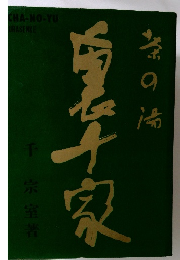 CHA-NO-YU
茶の湯
裏千家
千宗室著